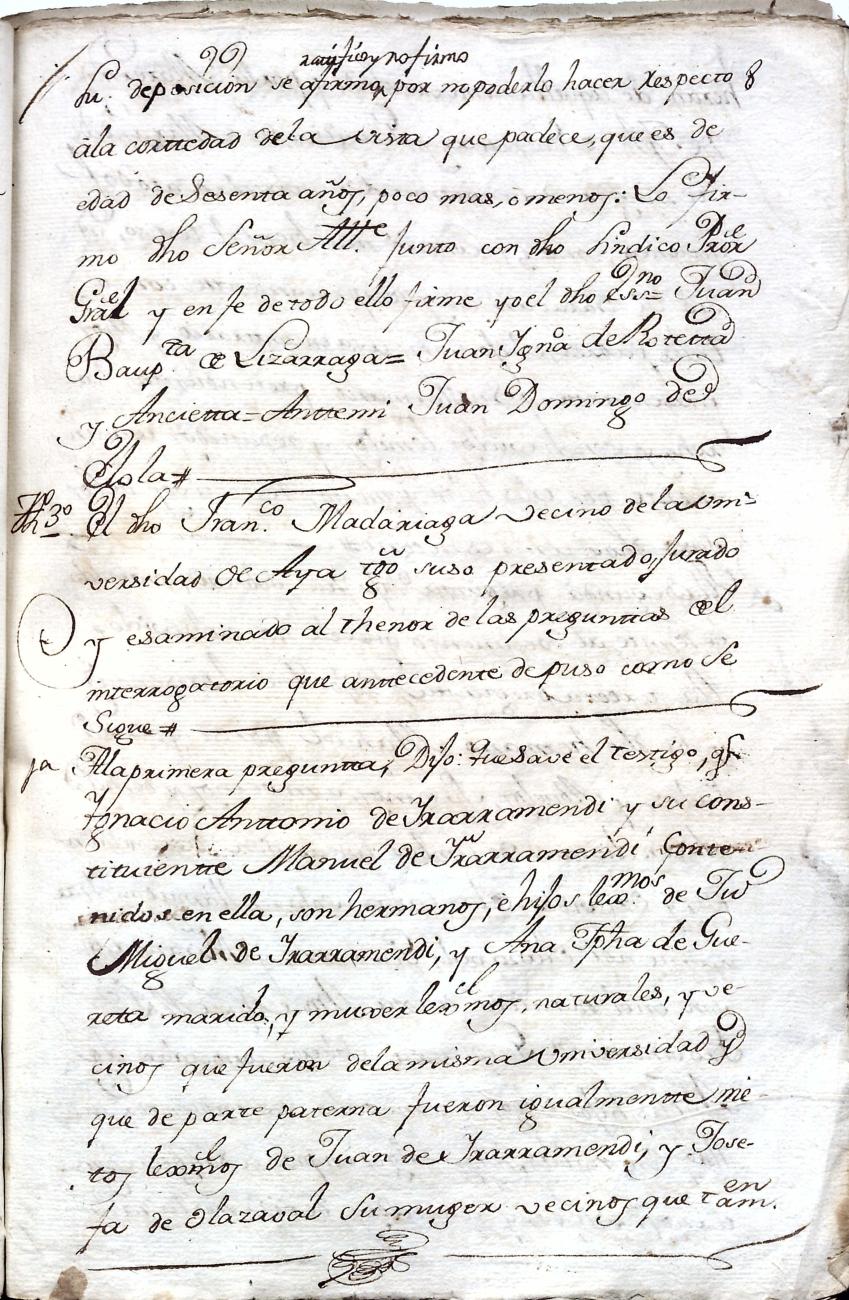 ratifico y no firmo
su deposición se afirmo, por no poderlo hacer respecto
âla corttedad dela vista que padece, que es de
edad de Sesenta años, poco mas, o menos: Lo fir-
mo dho Señor Alle. junto con dho Sindico Pror
Gral y en fe de todo ello firme yo el dho Essno= Juan
Baupta de Lizarraga= Juan Ygno de Rotetta
y Ancietta= Anttemi Juan Domingo de
Elola #
tgo 3º El dho Franco Madariaga vecino dela Uni-
versidad de Aya tgo suso presentado, Jurado
y esaminado al thenor de las preguntas del
interrogatorio que anttecedente depuso como se
Sigue #
1a Ala primera pregunta, Dijo: Que Save el testigo, q
Ygnacio Anttonio de Yrarramendi y su cons-
tituientte Manuel de Yrarramendi Conte-
nidos en ella, son hermanos, è hijos lexmos de Ju
Miguel de Yrarramendi, y Ana Jpha de Gue-
reta marido, y muxer lexmos, naturales, y ve-
cinos que fueron dela misma Universidad y
que de parte paterna fueron igualmentte nie-
tos lexmos de Juan de Yrarramendi, y Jose-
fa de Olazaval Su muger vecinos que tamen